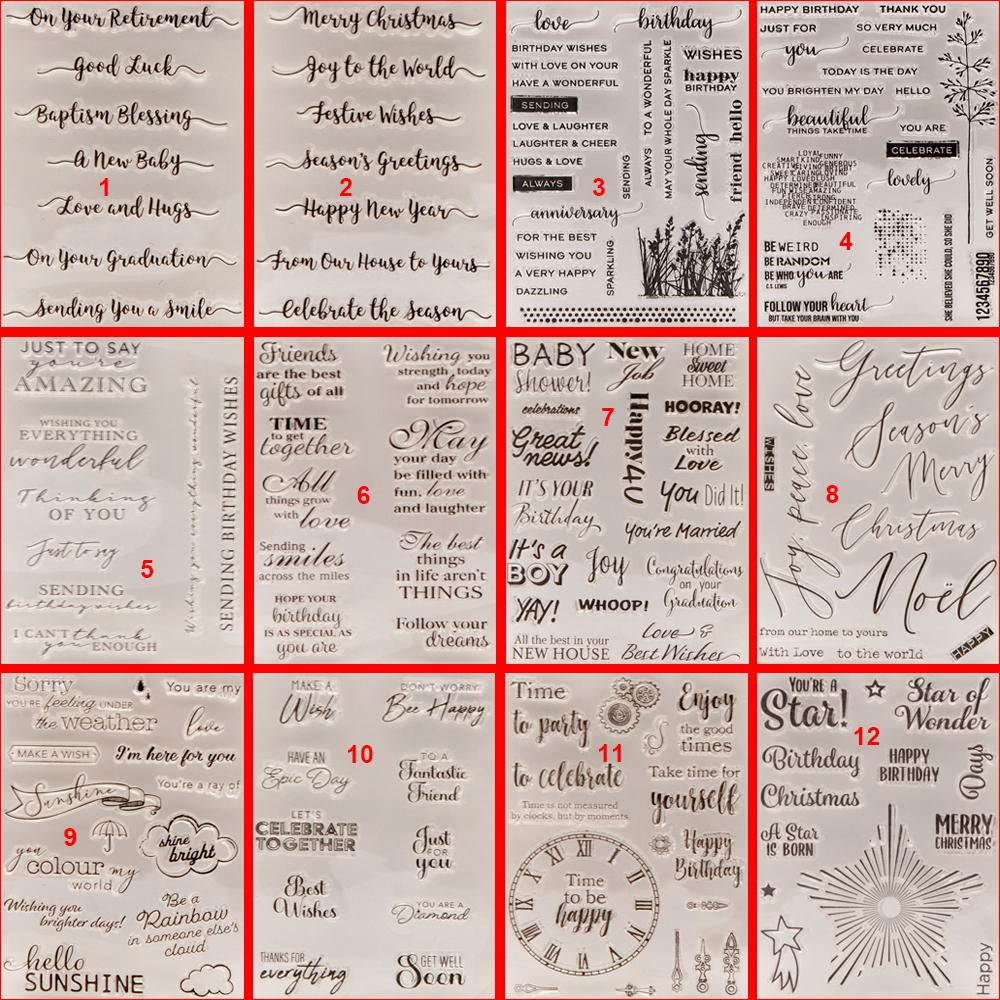 On Your Retirement
Good Luck
Baptism Blessing
A New Baby
1
Love and Hugs
On Your Graduation
Sending You a Smile
Merry Christmas
Joy to the World
Festive Wishes
Season's Greetings
2
Happy New Year
From Our House to Yours
Celebrate the Season
love
birthday
BIRTHDAY WISHES
WITH LOVE ON YOUR
HAVE A WONDERFUL
SENDING
LOVE & LAUGHTER
LAUGHTER & CHEER
HUGS & LOVE
ALWAYS
3
anniversary
FOR THE BEST
WISHING YOU
A VERY HAPPY
DAZZLING
SENDING
SPARKLING
ALWAYS
TO A WONDERFUL
MAY YOUR WHOLE DAY SPARKLE
WISHES
happy
BIRTHDAY
sending
friend
hello
HAPPY BIRTHDAY
THANK YOU
JUST FOR
SO VERY MUCH
you
CELEBRATE
TODAY IS THE DAY
YOU BRIGHTEN MY DAY
HELLO
beautiful
THINGS TAKE TIME
YOU ARE
CELEBRATE
lovely
LOYAL FUNNY
SMART KIND GENEROUS
CREATIVE LIVING BRIGHT
SWEET CARING LOVING
HAPPY LOVED LUSH
DETERMINED BEAUTIFUL
FUN WISE AMAZING
FIERCE STRONG
INDEPENDENT CONFIDENT
BRAVE DETERMINED
CRAZY PASSIONATE
INSPIRING
ENOUGH
4
BE WEIRD
BE RANDOM
BE WHO you ARE
C.S. LEWIS
FOLLOW YOUR heart
BUT TAKE YOUR BRAIN WITH YOU
SHE BELIEVED SHE COULD, SO SHE DID
1234567890
GET WELL SOON
JUST TO SAY
you're
AMAZING
WISHING YOU
EVERYTHING
wonderful
Thinking
OF YOU
Just to say
5
SENDING
birthday wishes
I CAN'T thank
you ENOUGH
Wishing you everything wonderful
SENDING BIRTHDAY WISHES
Friends
are the best
gifts of all
TIME
to get
together
All
things grow
with love
Sending
smiles
across the miles
HOPE YOUR
birthday
IS AS SPECIAL AS
you are
6
Wishing you
strength today
and hope
for tomorrow
May
your day
be filled with
fun, love
and laughter
The best
things
in life aren't
THINGS
Follow your
dreams
BABY
Shower!
New
Job
HOME
Sweet
HOME
celebrations
7
Happy 4U
HOORAY!
Great
news!
Blessed
with
Love
IT'S YOUR
Birthday
You Did It!
You're Married
It's a
BOY
Joy
Congratulations
on your
Graduation
YAY!
WHOOP!
All the best in your
NEW HOUSE
Love &
Best Wishes
Greetings
Season's
Merry
WISHES
Joy, peace, love
8
Christmas
Noël
from our home to yours
With Love
to the world
HAPPY
Sorry
YOU'RE feeling UNDER
the weather
You are my
love
MAKE A WISH
I'm here for you
You're a ray of
Sunshine
9
shine
bright
you
colour my
world
Wishing you
brighter days!
Be a
Rainbow
in someone else's
cloud
hello
SUNSHINE
MAKE A
Wish
DON'T WORRY
Bee Happy
10
HAVE AN
Epic Day
TO A
Fantastic
Friend
LET'S
CELEBRATE
TOGETHER
Just
for
you
Best
Wishes
YOU ARE A
Diamond
THANKS FOR
everything
GET WELL
Soon
Time
to party
Enjoy
the good
times
11
to celebrate
Take time for
yourself
Time is not measured
by clocks, but by moments
Happy
Birthday
XII
I
II
III
IIII
V
VI
VII
VIII
IX
X
XI
Time
to be
happy
YOU'RE A
Star!
Star of
Wonder
12
Birthday
HAPPY
BIRTHDAY
Days
Christmas
A Star
IS BORN
MERRY
CHRISTMAS
Happy